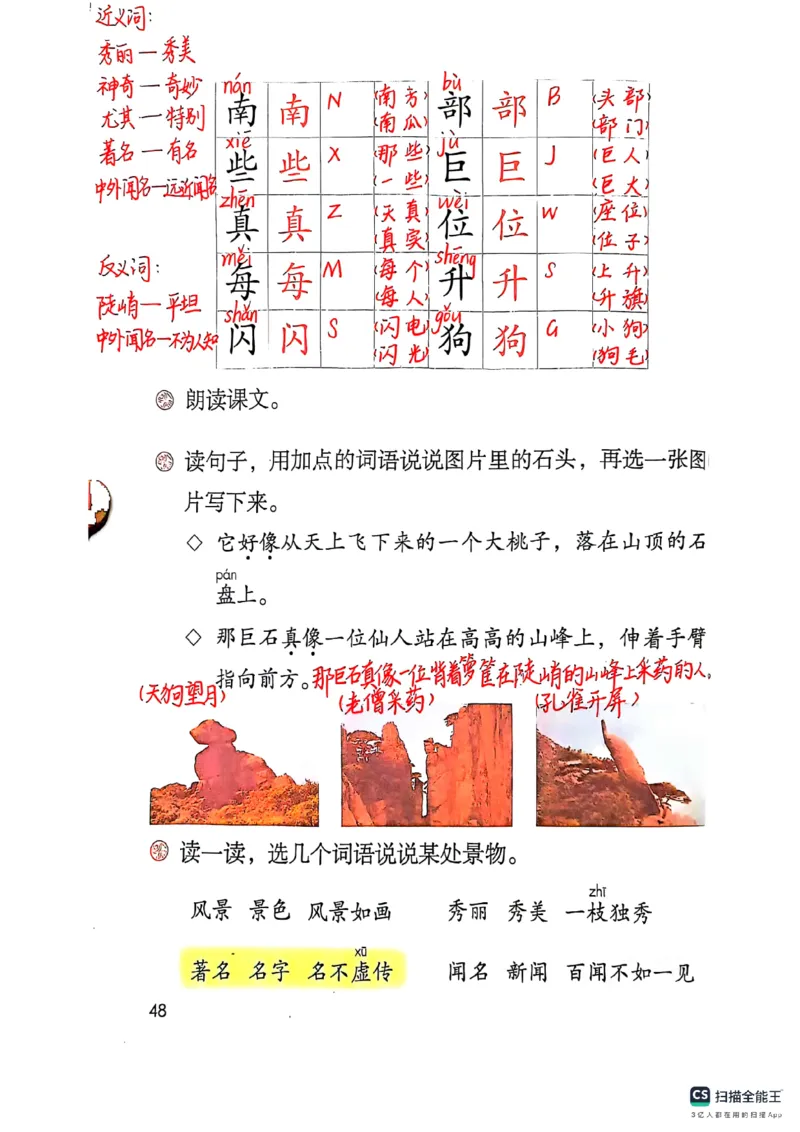 近义词:
秀丽—秀美
神奇—奇妙
尤其—特别
著名—有名
中外闻名—远近闻名
反义词:
陡峭—平坦
中外闻名—不为人知
nán bù
南 南 N (南方) 部 部 B (头部)
(南瓜) (部门)
xiē jù
些 些 X (那些) 巨 巨 J (巨人)
(一些) (巨大)
zhēn wèi
真 真 Z (天真) 位 位 W (座位)
(真实) (位子)
měi shēng
每 每 M (每个) 升 升 S (上升)
(每人) (升旗)
shǎn gǒu
闪 闪 S (闪电) 狗 狗 G (小狗)
(闪光) (狗毛)
朗读课文。
读句子，用加点的词语说说图片里的石头，再选一张图
片写下来。
◇ 它好像从天上飞下来的一个大桃子，落在山顶的石
pán
盘上。
◇ 那巨石真像一位仙人站在高高的山峰上，伸着手臂
指向前方。那巨石真像一位背着箩筐在陡峭的山峰上采药的人。
(天狗望月) (老僧采药) (孔雀开屏)
读一读，选几个词语说说某处景物。
zhī
风景 景色 风景如画 秀丽 秀美 一枝独秀
xū
著名 名字 名不虚传 闻名 新闻 百闻不如一见
48
CS 扫描全能王
3亿人都在用的扫描App